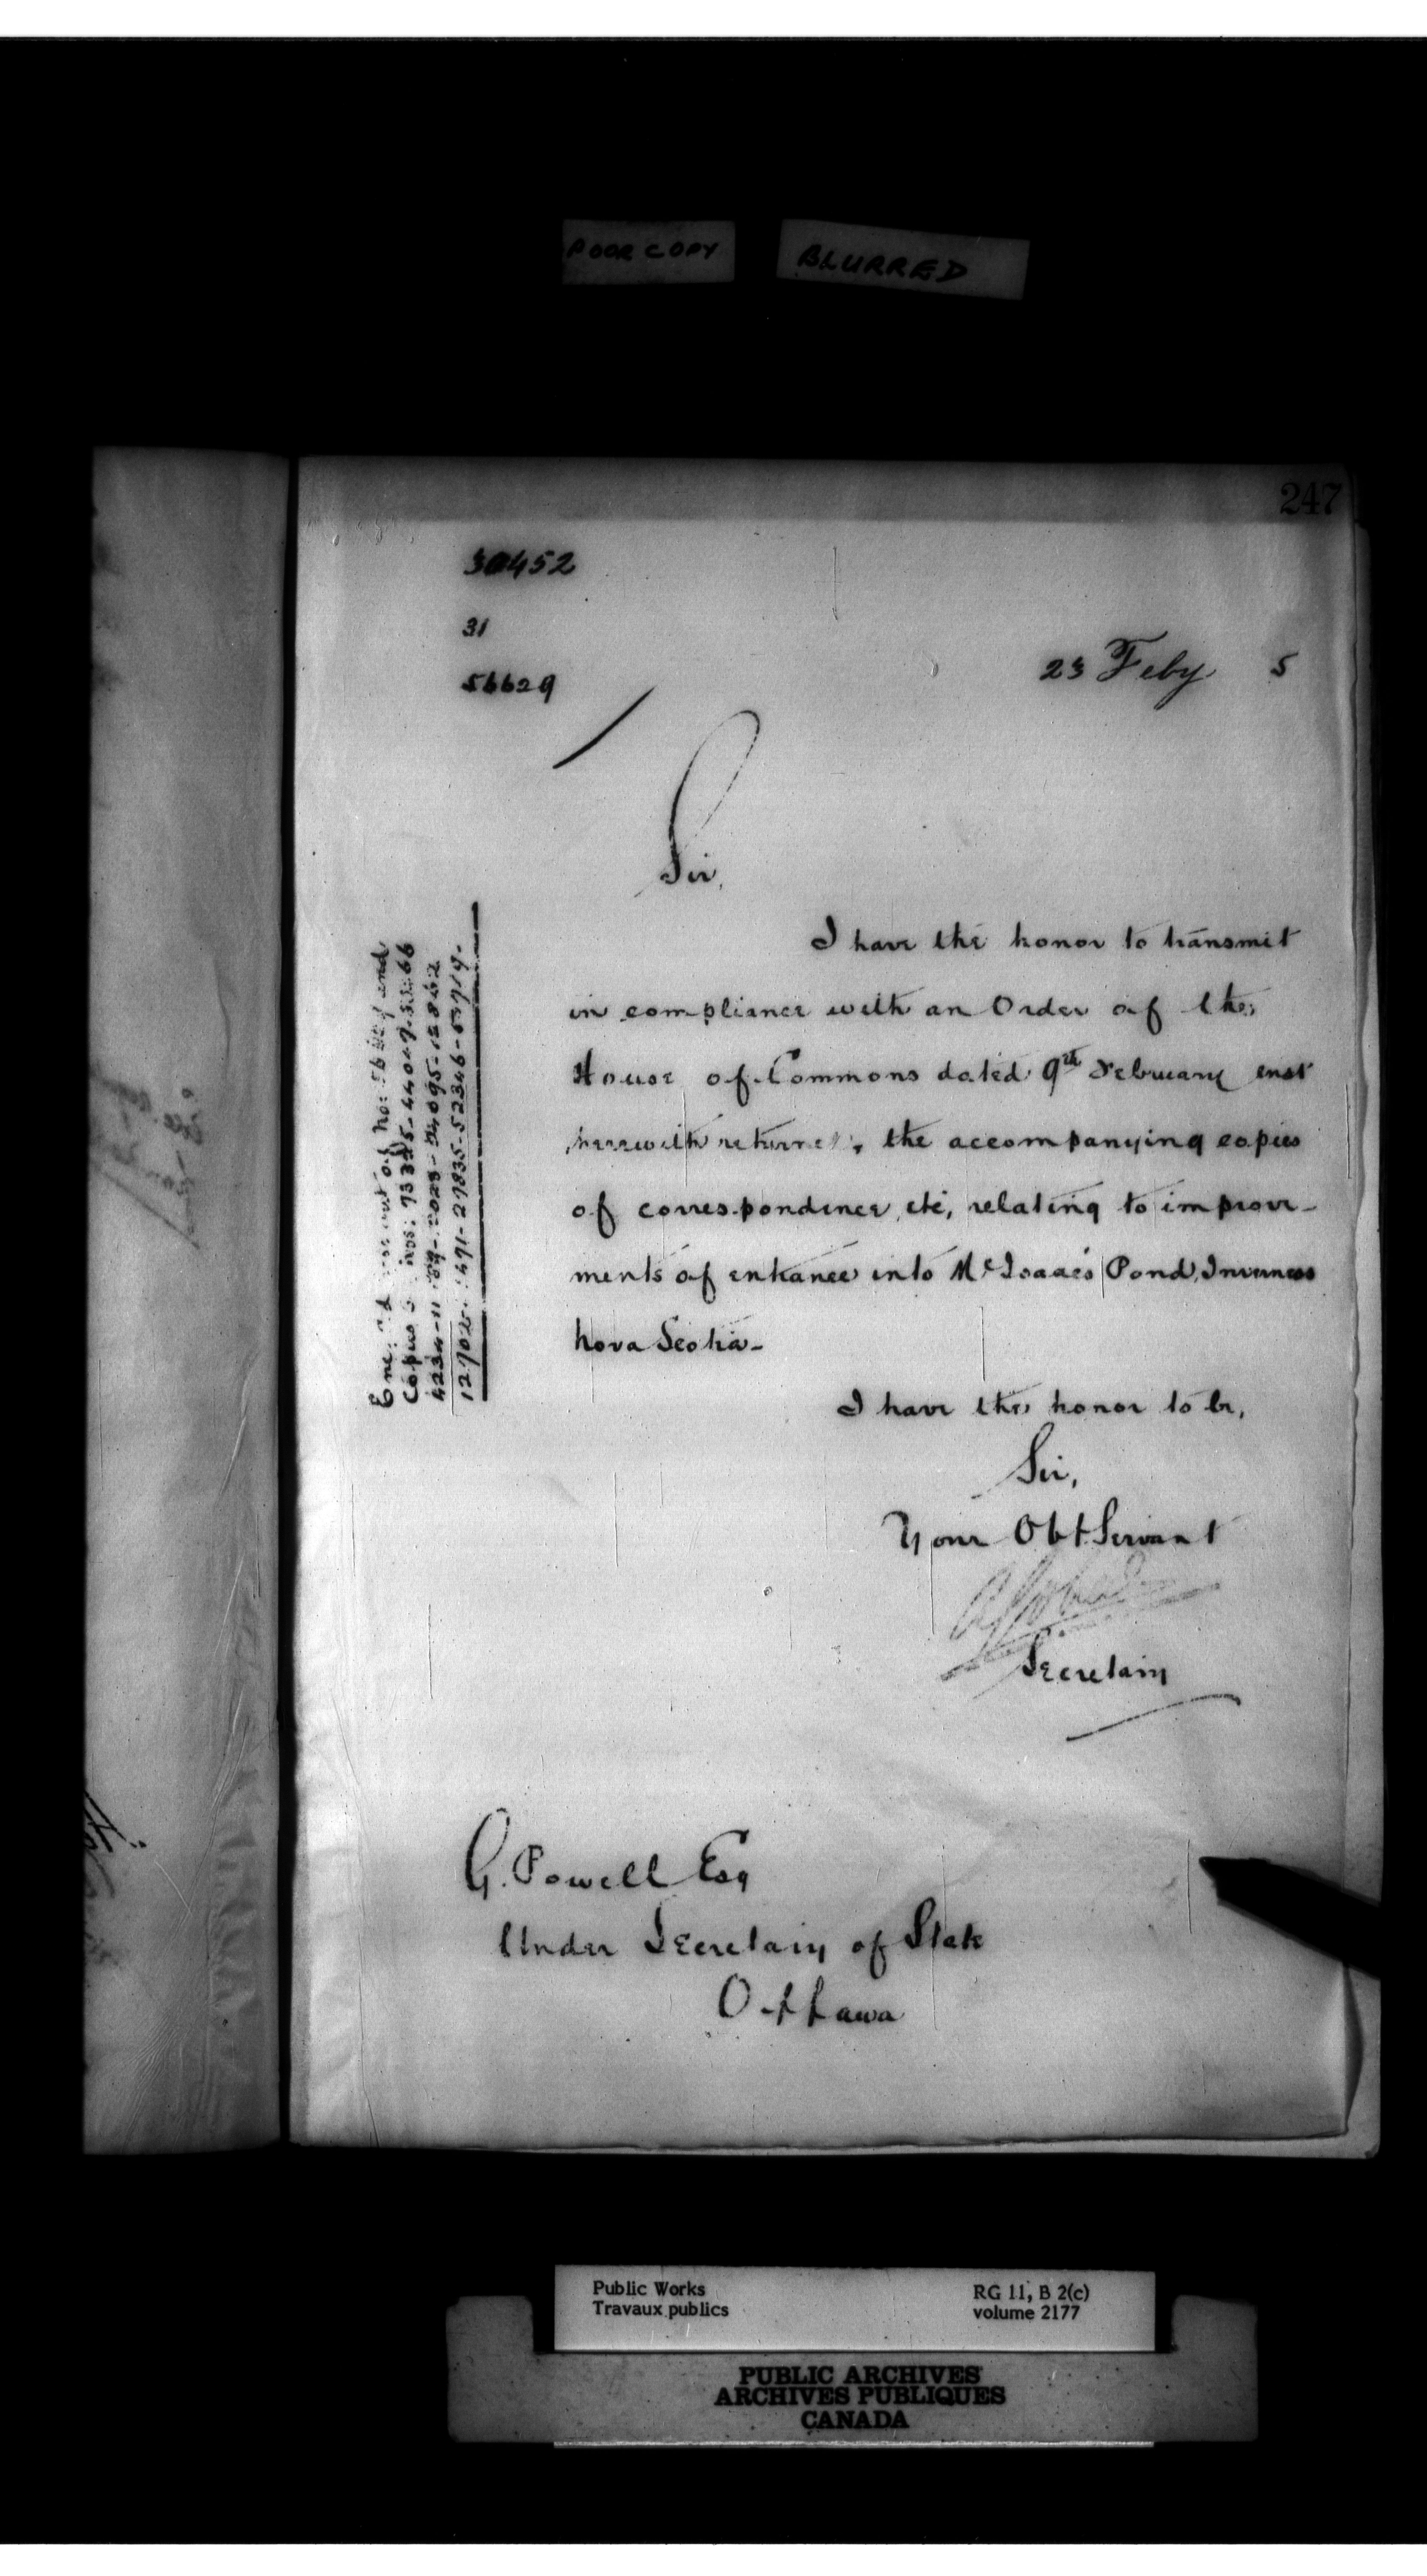 POOR COPY BLURRED
247
30452
31
56629
23 Feby 5
Sir,
I have the honor to transmit
in compliance with an Order of the
House of Commons dated 9th February inst
herewith returned, the accompanying copies
of correspondence, etc, relating to improve-
ments of entrance into McIsaac's Pond, Inverness
Nova Scotia-
I have the honor to be,
Sir,
Your Obt Servant
Secretary
G. Powell Esq
Under Secretary of State
Ottawa
Public Works
Travaux publics
RG 11, B 2(c)
volume 2177
PUBLIC ARCHIVES
ARCHIVES PUBLIQUES
CANADA